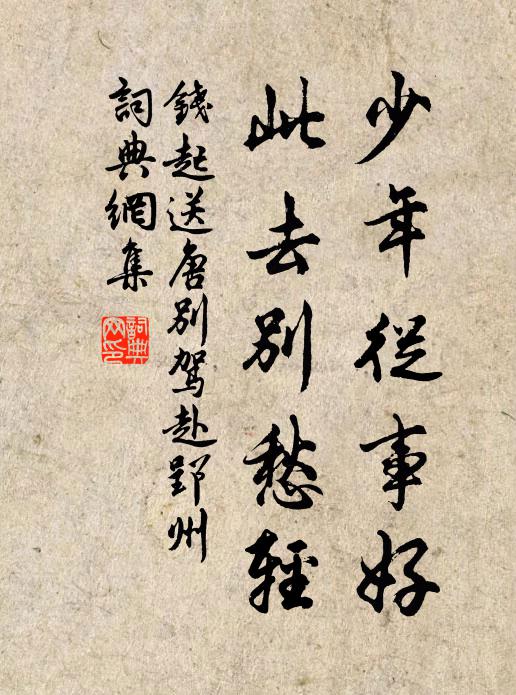 少年從事好
此去別愁輕
錢起送唐別駕赴郢州
詞典網集
詞典
网印